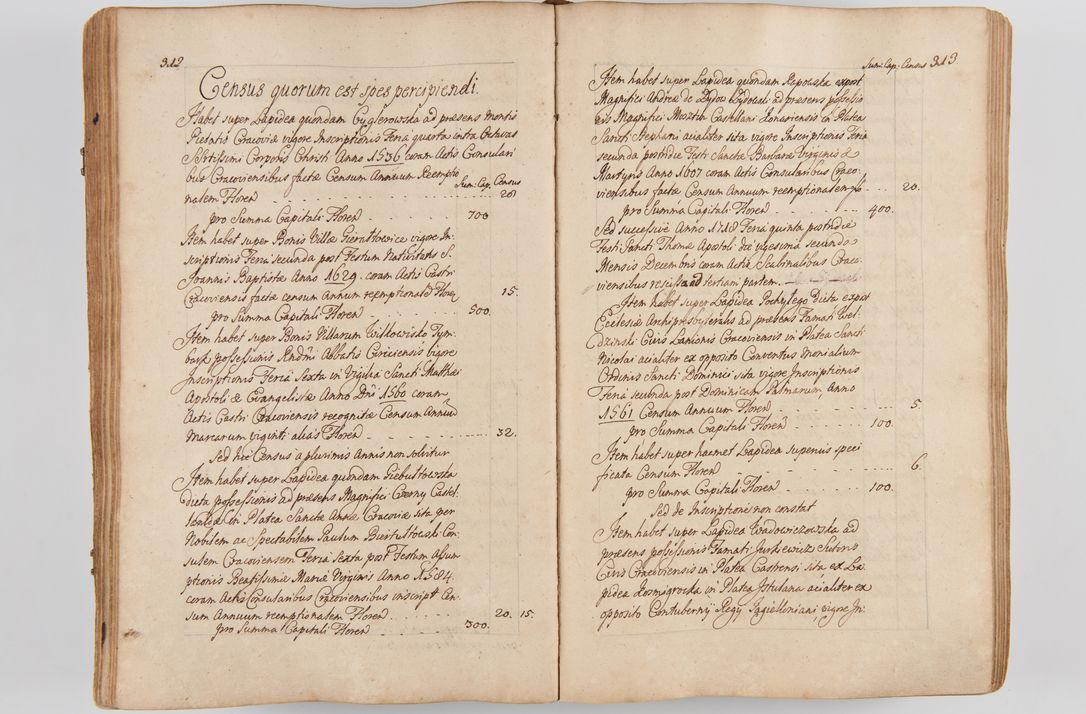 312
Census quorum est spes percipiendi.
Habet super Lapidea quondam Cyglerowska ad præsens Montis
Pietatis Cracoviæ vigore Inscriptionis Feria quarta intra Octavas
Sacratissimi Corporis Christi Anno 1536 coram Actis Consulari
bus Cracoviensibus factæ Censum Annuum Reemptio
Sum: Cap: Census
nalem Floren 20
pro Summa Capitali Floren 700.
Item habet super Bonis Villæ Gierałtowice vigore In:
scriptionis Feria secunda post Festum Nativitatis S.
Joannis Baptistæ Anno 1629. coram Actis Castri
Cracoviensis factæ censum Annuum reemptionalē Floreñ 15.
pro Summa Capitali Floren 500.
Item habet super Bonis Villarum Wilkowisko Tym:
bark possessionis Rndmi Abbatis Ciriciensis vigore
Inscriptionis Feria Sexta in Vigilia Sancti Matthæi
Apostoli & Evangelistæ Anno Dñi 1560 coram
Actis Castri Cracoviensis recognitæ Censum Annuū
Marcarum viginti alias Floren 32.
Sed hic Census a plurimis Annis non solvitur
Item habet super Lapidea quondam Giebułtowska
dicta possessionis ad præsens Magnifici Czerny Castel:
in Platea Sanctæ Annæ Cracoviæ sita per
Nobilem ac Spectabilem Paulum Con:
sulem Cracoviensem Feria Sexta post Festum Assum
ptionis Beatissimæ Mariæ Virginis Anno 1584.
coram Actis Consularibus Cracoviensibus inscript Cen:
sum Annuum reemptionalem Floren 20. 15.
pro Summa Capitali Floren 300.
Sum: Cap: Census 313.
Item habet super Lapidea quondam expost
Magnifici Andreæ de ad præsens possessio
nis Magnifici Castellani in Platea
Sancti Stephani acialiter sita vigore Inscriptionis Feria
secunda postridie Festi Sanctæ Barbaræ Virginis &
Martyris Anno 1607 coram Actis Consularibus Craco:
viensibus factæ Censum Annuum reemptionalem 20.
pro Summa Capitali Floren 400.
Sed successive Anno 1718 Feria quinta postridie
Festi Sancti Thomæ Apostoli die vigesima secunda
Mensis Decembris coram Actis Scabinalibus Craco:
viensibus rescissa ad tertiam partem.
Item habet super Lapidea Pochylego dicta expost
Ecclesiæ Archipresbyteralis ad præsens Famati Wel:
Civis Lanionis Cracoviensis in Platea Sancti
Nicolai acialiter ex opposito Conventus Monialium
Ordinis Sancti Dominici sita vigore Inscriptionis
Feria secunda post Dominicam Palmarum, Anno
1561 Censum Annuum Floren 5.
pro Summa Capitali Floren 100.
Item habet super hacmet Lapidea superius speci
ficata Censum Floren 6.
pro Summa Capitali Floren 100.
Sed de Inscriptione non constat
Item habet super Lapidea Wadowickowska ad
præsens possessionis Famati Jurkiewicz Sutoris
Civis Cracoviensis in Platea Castrensi sita ex La:
pidea in Platea acialiter ex
opposito Contubernij Regij Jagielloniani, vigore In: